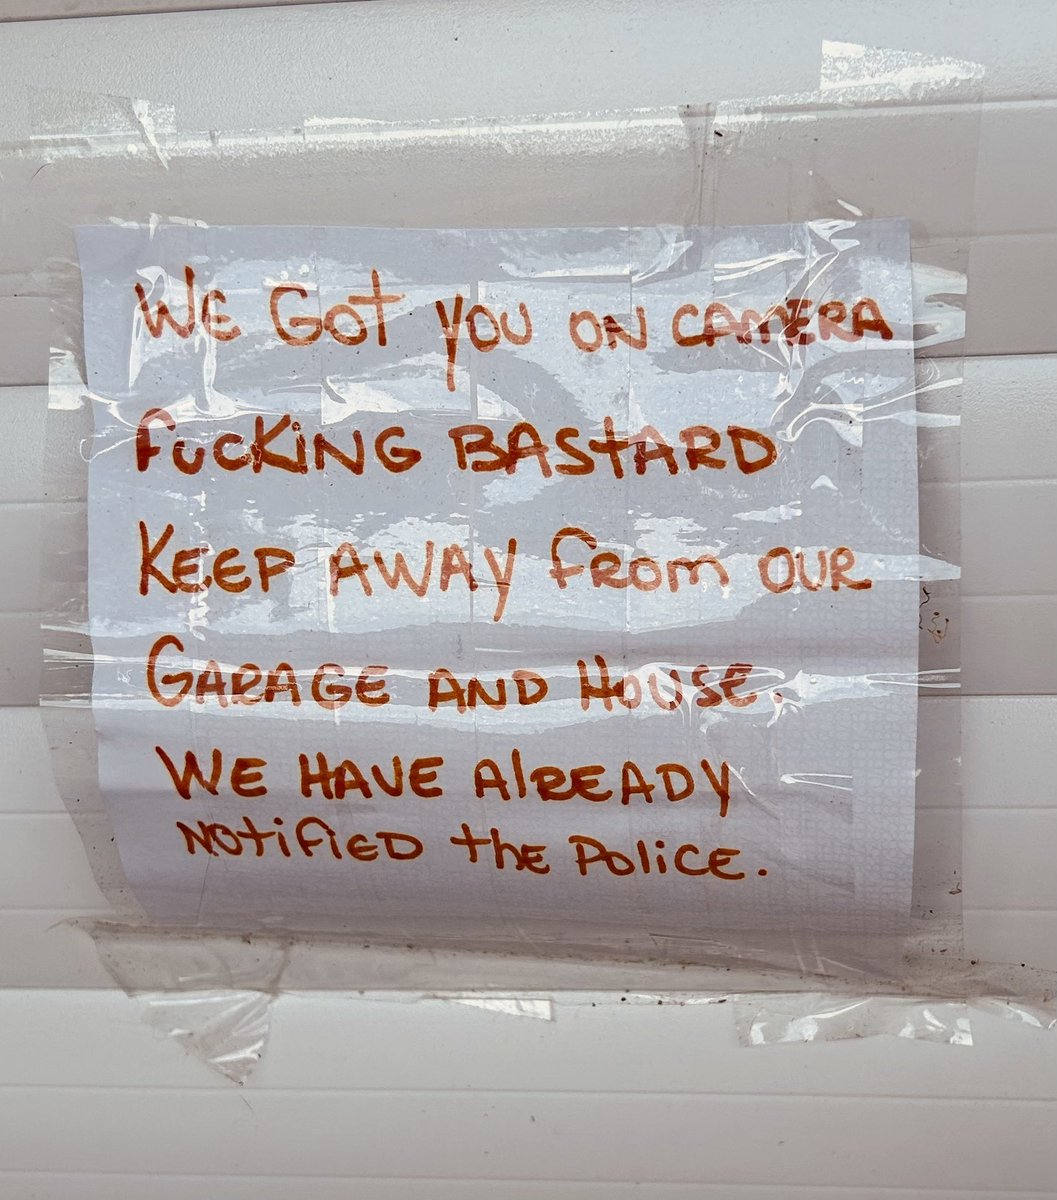 WE GOT YOU ON CAMERA
FUCKING BASTARD
KEEP AWAY FROM OUR
GARAGE AND HOUSE.
WE HAVE AlREADY
NOtifiED thE PoliCE.